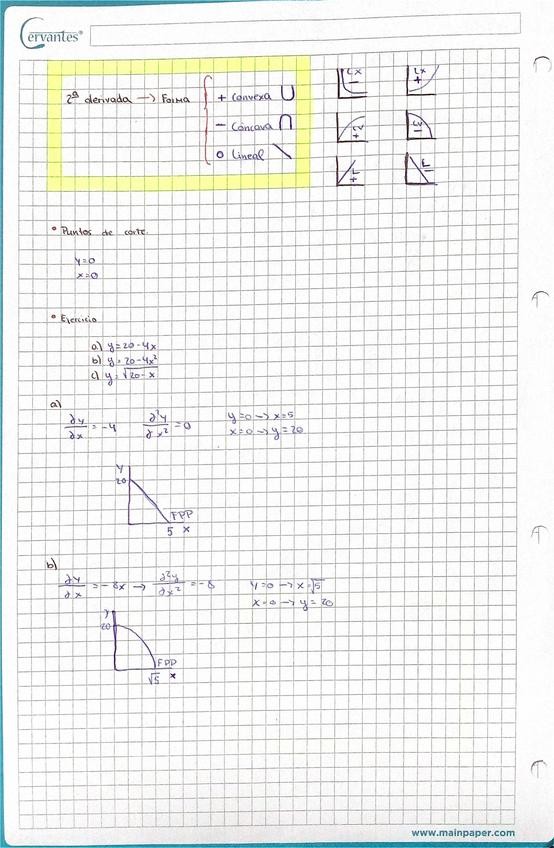 Cervantes®
2ª derivada → Forma
+ convexa
- cóncava
0 Lineal
CX
-
CX
+
CV
+
CV
-
L
+
L
-
• Puntos de corte.
y=0
x=0
• Ejercicio
a) y=20-4x
b) y=20-4x²
c) y=√20-x
a)
∂y/∂x = -4 ∂²y/∂x² = 0 y=0 → x=5
x=0 → y=20
y
20
FPP
5 x
b)
∂y/∂x = -8x → ∂²y/∂x² = -8 y=0 → x=√5
x=0 → y=20
y
20
FPP
√5 x
www.mainpaper.com